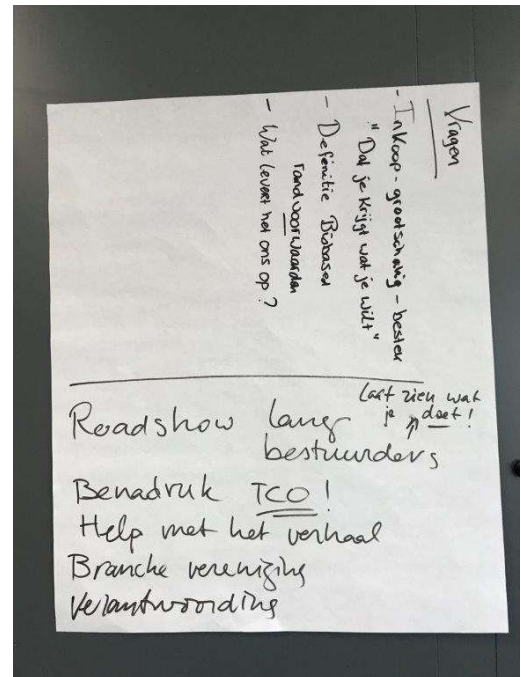 Vragen
- Inkoop - grootschalig - bestek
" Dat je krijgt wat je wilt "
- Definitie Biobased
randvoorwaarden
- Wat levert het ons op ?
Laat zien wat
je doet !
Roadshow lang
bestuurders
Benadruk TCO !
Help met het verhaal
Branche vereniging
Verantwoording